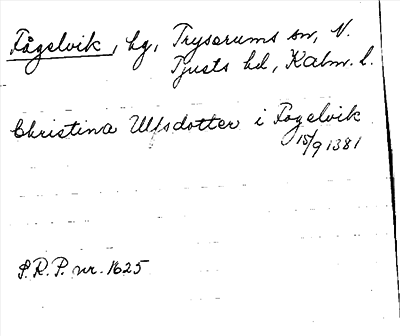 Fågelvik, hg, Tryserums sn, N.
Tjusts hd, Kalm. l.
Christina Ulfsdotter i Fogelvik
15/9 1381
S.R.P. nr. 1625